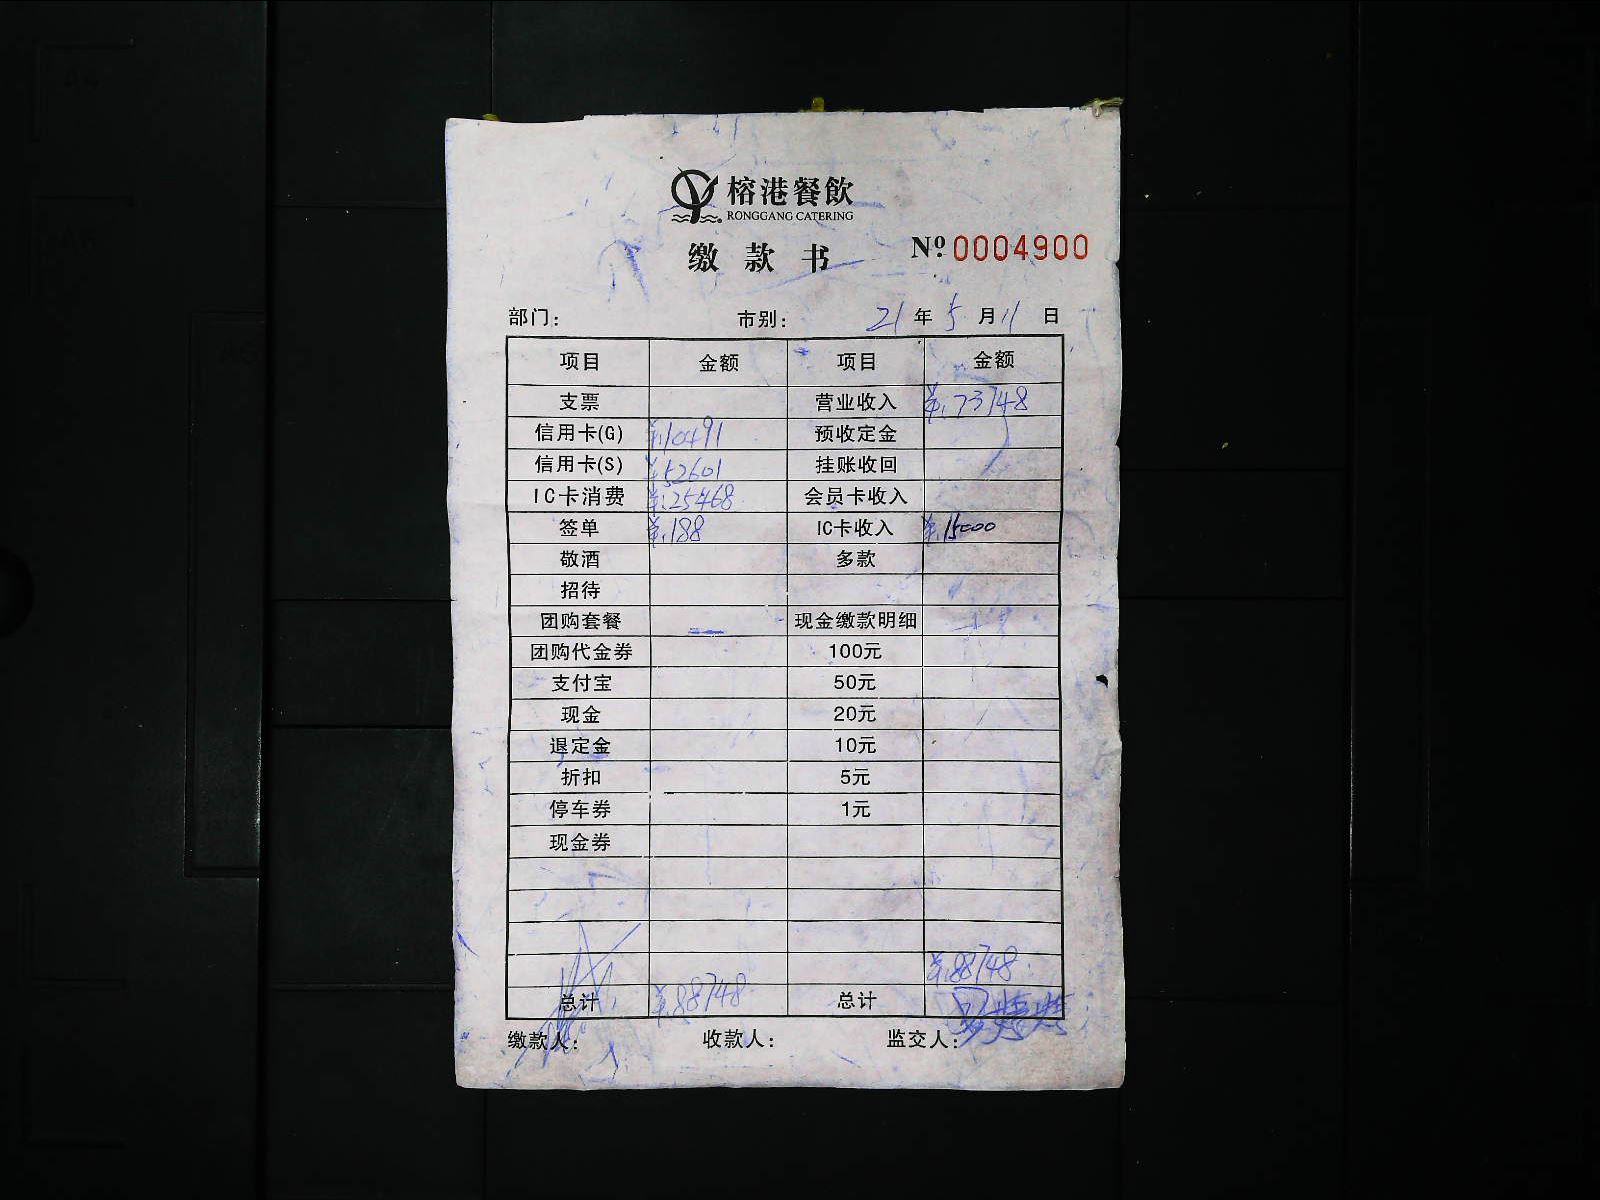 榕港餐飲
RONGGANG CATERING
缴款书 Nº 0004900
部门： 市别： 21年5月11日
项目 金额 项目 金额
支票 营业收入 ¥:73748
信用卡(G) ¥:10491 预收定金
信用卡(S) ¥:52601 挂账收回
IC卡消费 ¥:25468 会员卡收入
签单 ¥:188 IC卡收入 ¥:15000
敬酒 多款
招待
团购套餐 现金缴款明细
团购代金券 100元
支付宝 50元
现金 20元
退定金 10元
折扣 5元
停车券 1元
现金券
¥:88748
总计 ¥:88748 总计
缴款人： 收款人： 监交人：